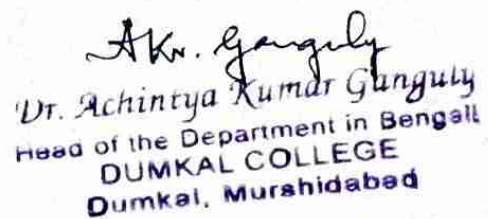 AKr. Ganguly
Dr. Achintya Kumar Ganguly
Head of the Department in Bengali
DUMKAL COLLEGE
Dumkal, Murshidabad